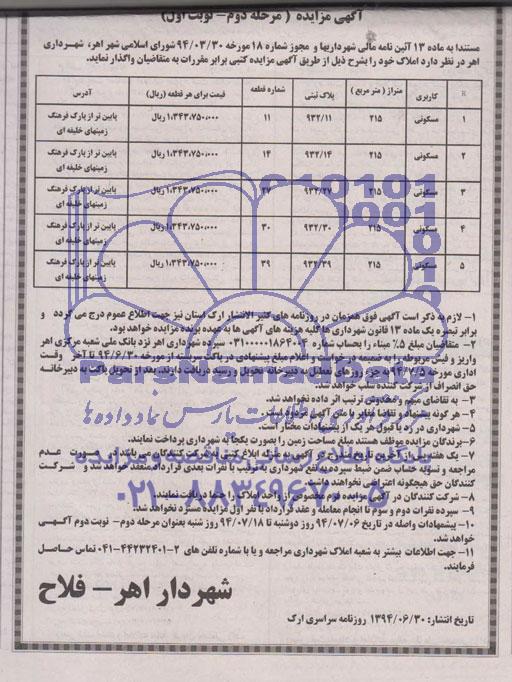 آگهی مزایده ( مرحله دوم- نوبت اول)
مستندا به ماده ۱۳ آئین نامه مالی شهرداریها و مجوز شماره ۱۸ مورخه ۹۴/۰۳/۳۰ شورای اسلامی شهر اهر، شهرداری
اهر در نظر دارد املاک خود را بشرح ذیل از طریق آگهی مزایده کتبی برابر مقررات به متقاضیان واگذار نماید.
R کاربری متراژ ( متر مربع ) پلاک ثبتی شماره قطعه قیمت برای هر قطعه (ریال) آدرس
۱ مسکونی ۲۱۵ ۹۳۲/۱۱ ۱۱ ۱،۳۴۳،۷۵۰،۰۰۰ ریال پایین تر از پارک فرهنگ زمینهای خلیفه ای
۲ مسکونی ۲۱۵ ۹۳۲/۱۴ ۱۴ ۱،۳۴۳،۷۵۰،۰۰۰ ریال پایین تر از پارک فرهنگ زمینهای خلیفه ای
۳ مسکونی ۲۱۵ ۹۳۲/۲۷ ۲۷ ۱،۳۴۳،۷۵۰،۰۰۰ ریال پایین تر از پارک فرهنگ زمینهای خلیفه ای
۴ مسکونی ۲۱۵ ۹۳۲/۳۰ ۳۰ ۱،۳۴۳،۷۵۰،۰۰۰ ریال پایین تر از پارک فرهنگ زمینهای خلیفه ای
۵ مسکونی ۲۱۵ ۹۳۲/۳۹ ۳۹ ۱،۳۴۳،۷۵۰،۰۰۰ ریال پایین تر از پارک فرهنگ زمینهای خلیفه ای
۱- لازم به ذکر است آگهی فوق همزمان در روزنامه های کثیر الانتشار ارک استان نیز جهت اطلاع عموم درج می گردد و
برابر تبصره یک ماده ۱۳ قانون شهرداری ها کلیه هزینه های آگهی ها به عهده برنده مزایده خواهد بود.
۲- متقاضیان مبلغ ۵٪ مبناء را بحساب شماره سپرده شهرداری اهر نزد بانک ملی شعبه مرکزی اهر
واریز و فیش مربوطه را به ضمیمه درخواست و اعلام مبلغ پیشنهادی در پاکت سربسته از مورخه ۹۴/۶/۳۰ تا آخر وقت
اداری مورخه ۹۴/۷/۵ به جز روزهای تعطیل به دبیرخانه تحویل و رسید دریافت دارند. بعد از تحویل پاکت به دبیرخانه
حق انصراف از شرکت کننده سلب خواهد شد.
۳- به تقاضای مبهم و مخدوش ترتیب اثر داده نخواهد شد.
۴- هر گونه پیشنهاد و تقاضا مغایر با متن آگهی مردود است.
۵- شهرداری در رد یا قبول هر یک از پیشنهادات مختار است.
۶- برندگان مزایده موظف هستند مبلغ مساحت زمین را بصورت یکجا به شهرداری پرداخت نمایند.
۷- یک هفته پس از آخرین تاریخ مندرج در آگهی به منزله ابلاغ کتبی به شرکت کنندگان می باشد که در صورت عدم
مراجعه و تسویه حساب ضمن ضبط سپرده به نفع شهرداری بترتیب با نفرات بعدی قرارداد منعقد خواهد شد و شرکت
کنندگان حق هیچگونه اعتراضی نخواهند داشت.
۸- شرکت کنندگان در آگهی مزایده فرم مخصوص از واحد املاک را حتما دریافت نمایند.
۹- سپرده نفرات دوم و سوم تا انجام معامله و عقد قرارداد با نفر اول مزایده مسترد نخواهد شد.
۱۰- پیشنهادات واصله در تاریخ ۹۴/۰۷/۰۶ روز دوشنبه تا ۹۴/۰۷/۱۸ روز شنبه بعنوان مرحله دوم- نوبت دوم آگهی
خواهد شد.
۱۱- جهت اطلاعات بیشتر به شعبه املاک شهرداری مراجعه و یا با شماره تلفن های ۲-۰۴۱-۴۴۲۳۲۴۰۱ تماس حاصل
فرمایند.
شهردار اهر- فلاح
تاریخ انتشار: ۱۳۹۴/۰۶/۳۰ روزنامه سراسری ارک
ParsNamadData
۰۲۱-۸۸۳۴۹۶۷۰-۵